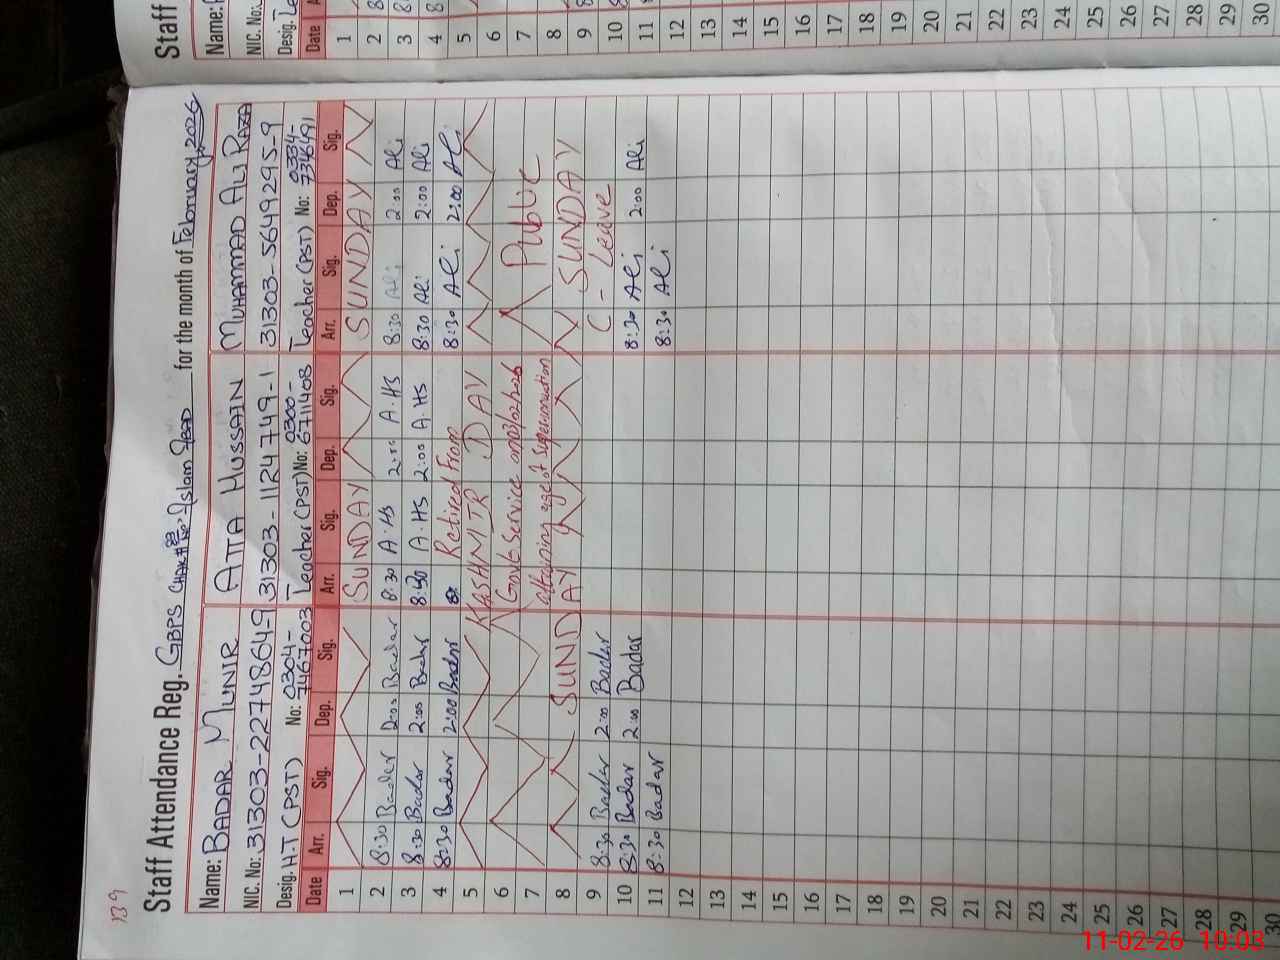 139
Staff Attendance Reg. GBPS CHAK# for the month of February, 2026
Name: BADAR MUNIR ATTA HUSSAIN MUHAMMAD ALI RAZA
NIC. No: 31303-2274864-9 31303-1124749-1 31303-5649295-9
Desig. H.T (PST) No: 0304-7467003 Teacher (PST) No: 0300-6711408 Teacher (PST) No: 0334-7346491
Date Arr. Sig. Dep. Sig. Arr. Sig. Dep. Sig. Arr. Sig. Dep. Sig.
1 SUNDAY SUNDAY
2 8:30 Badar 2:00 Badar 8:30 A.HS 2:00 A.HS 8:30 Ali 2:00 Ali
3 8:30 Badar 2:00 Badar 8:30 A.HS 2:00 A.HS 8:30 Ali 2:00 Ali
4 8:30 Badar 2:00 Badar Retired From 8:30 Ali 2:00 Ali
5 KASHMIR DAY
6 Govt Service on 03/02/2026 Public
7 attaining age of Superannuation
8 SUNDAY SUNDAY
9 8:30 Badar 2:00 Badar C - Leave
10 8:30 Badar 2:00 Badar 8:30 Ali 2:00 Ali
11 8:30 Badar 8:30 Ali
12
13
14
15
16
17
18
19
20
21
22
23
24
25
26
27
28
29
30
Staff
Name:
NIC. No:
Desig.
Date
1
2
3
4
5
6
7
8
9
10
11
12
13
14
15
16
17
18
19
20
21
22
23
24
25
26
27
28
29
30
11-02-26 10:03